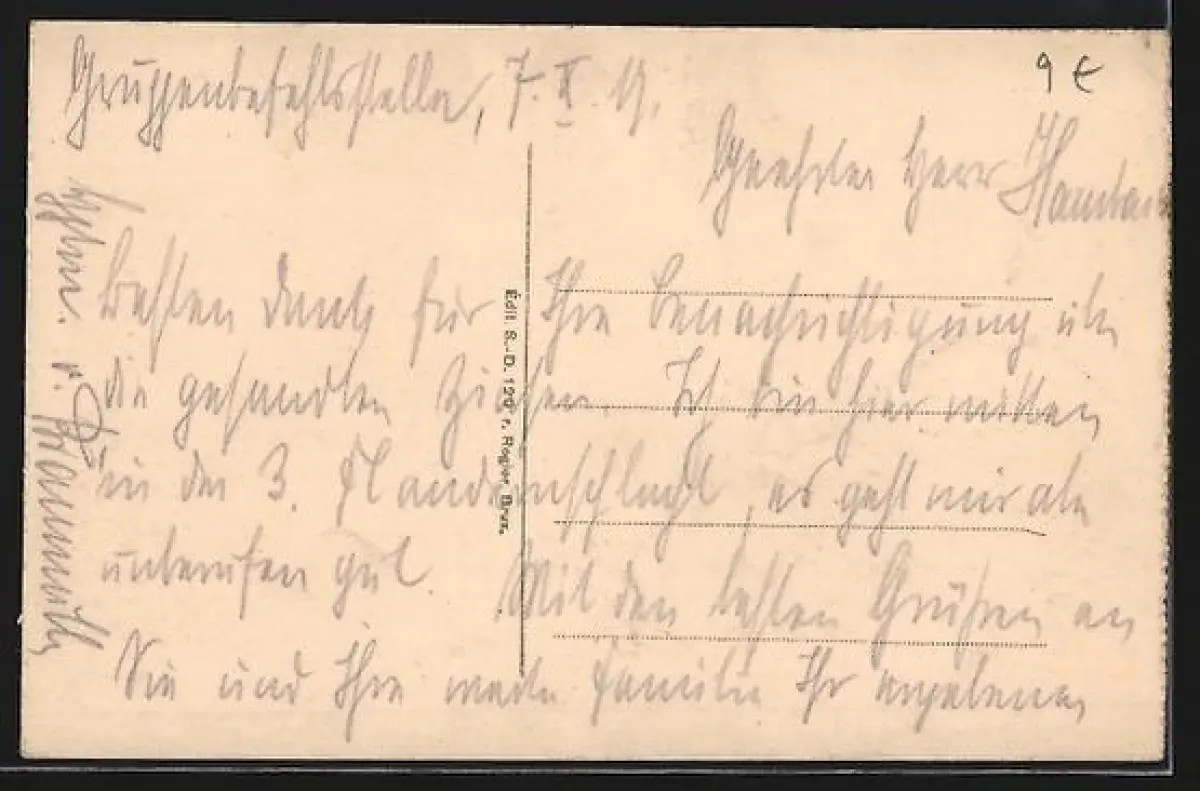 Gruppenbefehlsstelle, 7. X. 17.
9 €
Geehrter Herr
Besten Dank für Ihre Benachrichtigung über
die gesandten Zeichen. Ich bin hier mitten
in der 3. Flandernschlacht, es geht mir aber
unberufen gut. Mit den besten Grüßen an
Sie und Ihre werte Familie Ihr ergebener
v.
Edit S.-D. 129 r. Rogier Brux.